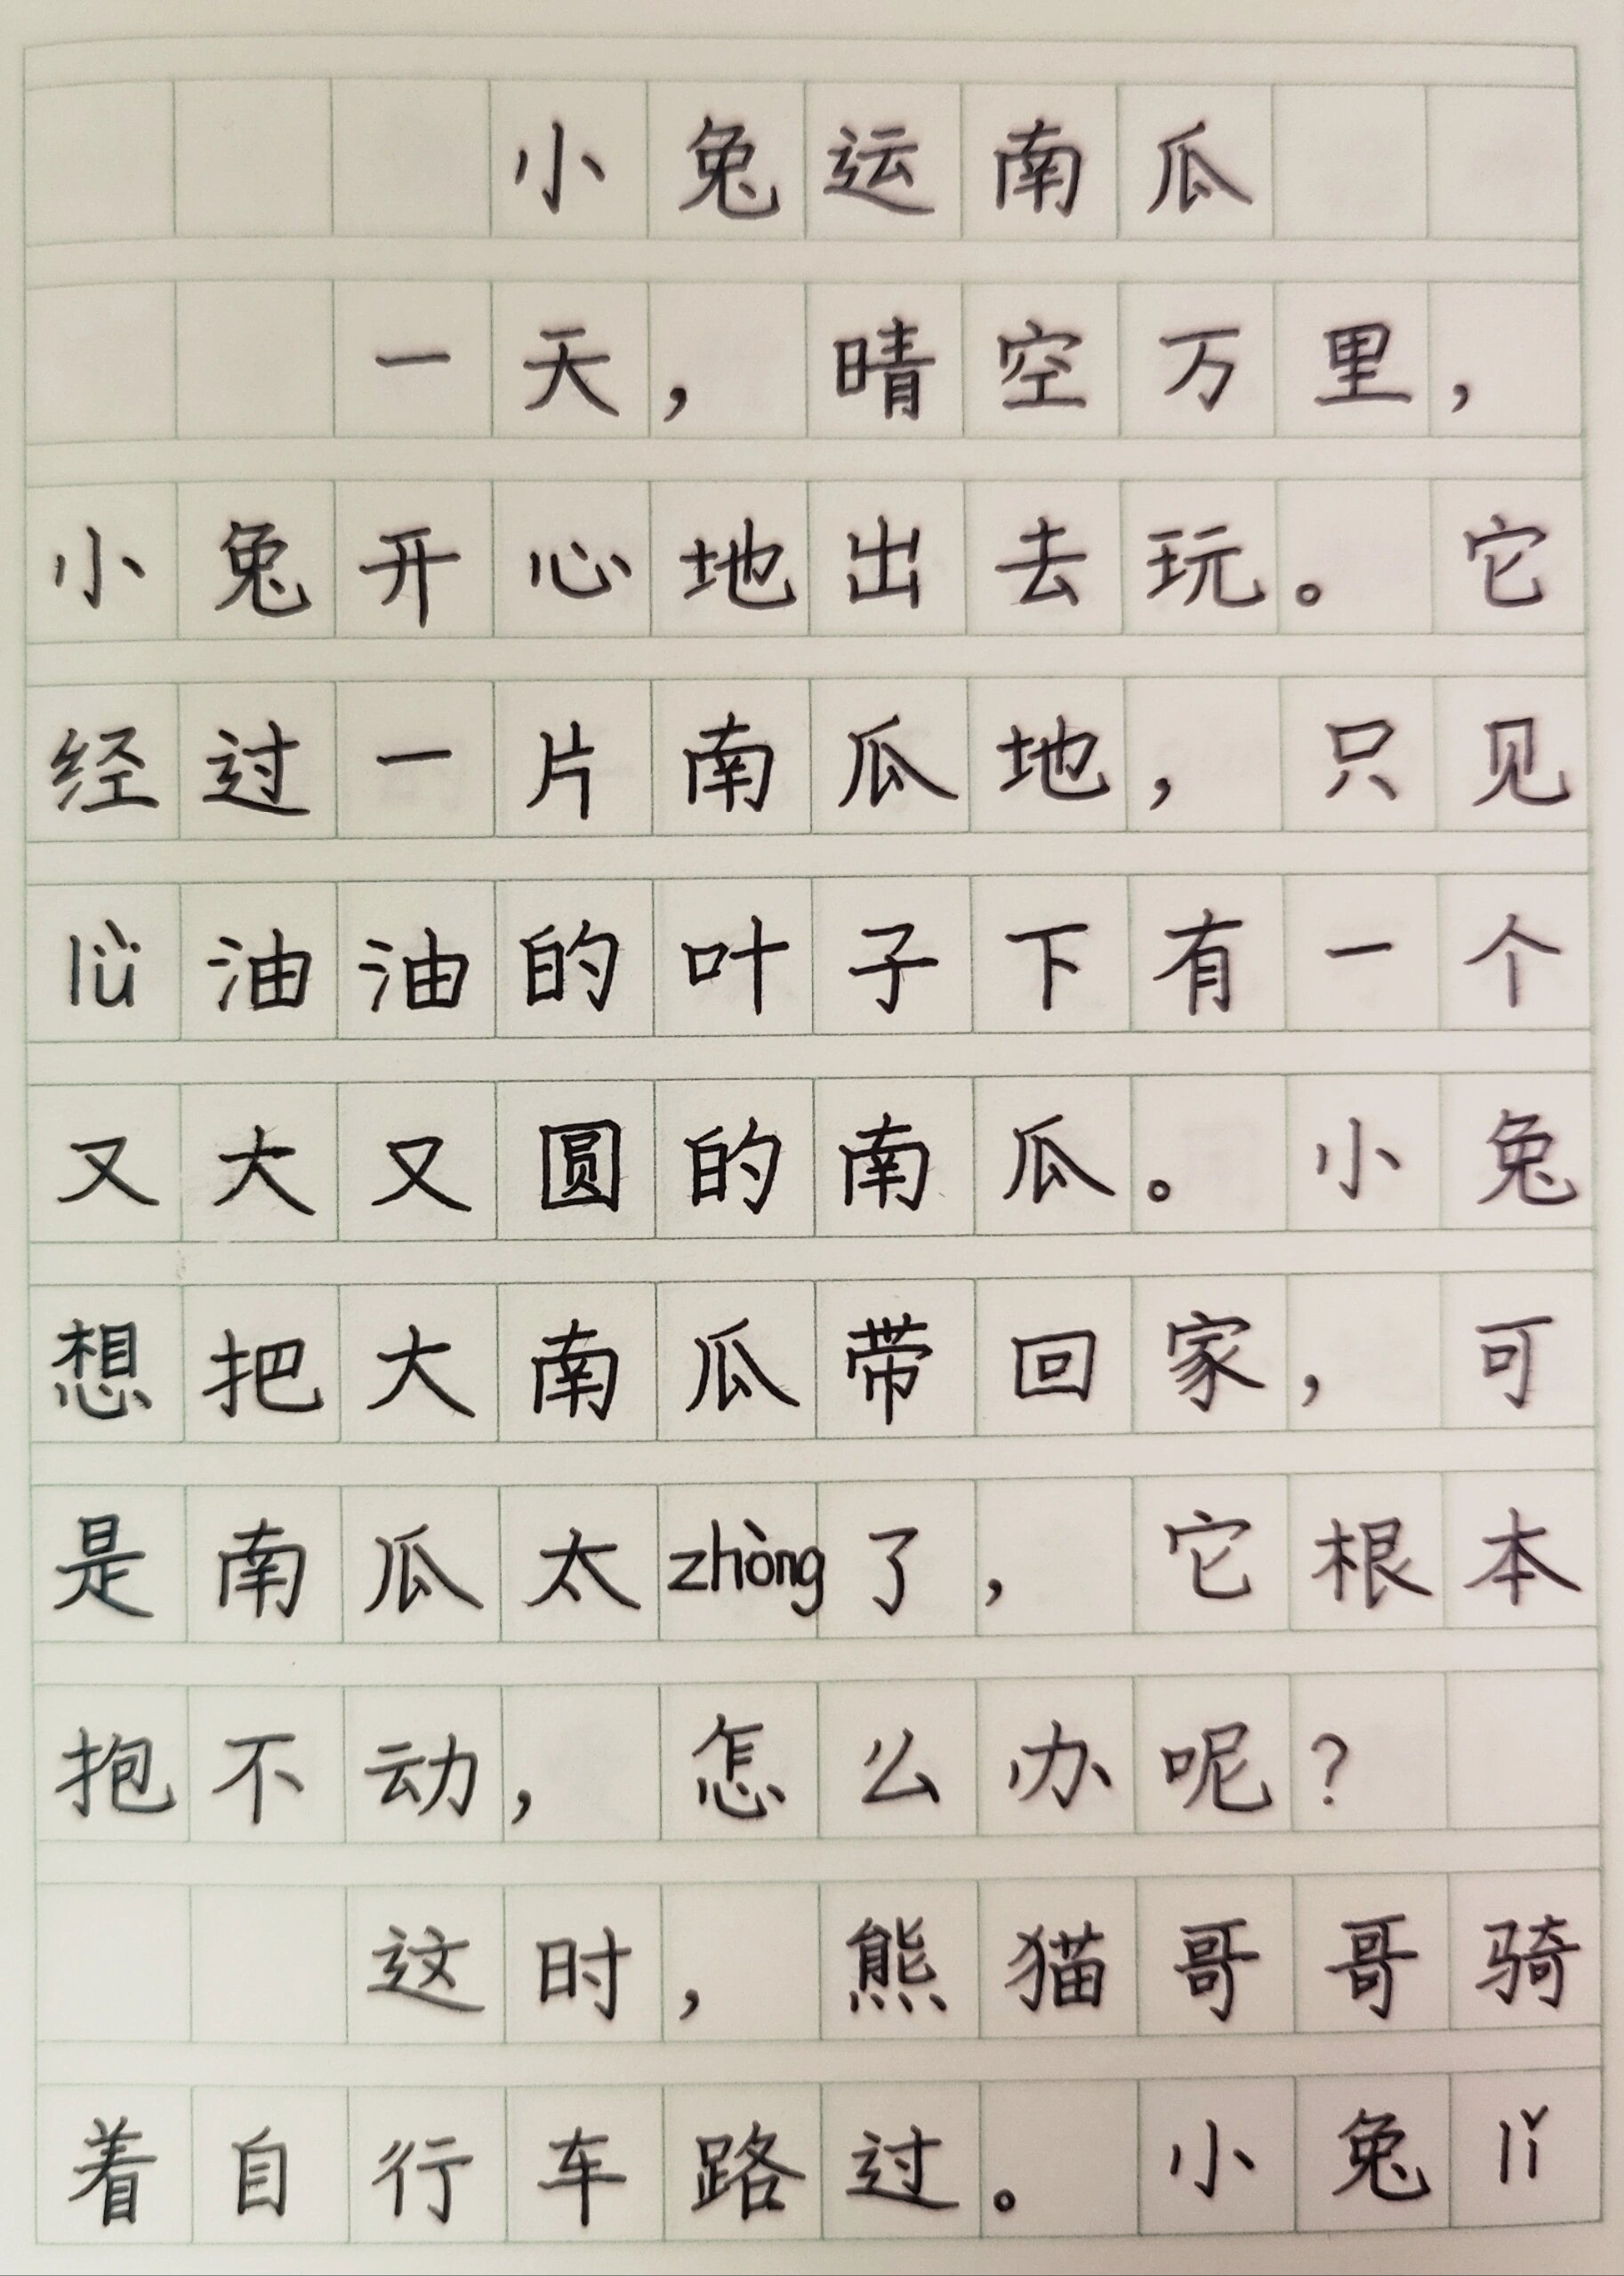 小兔运南瓜
一天，晴空万里，
小兔开心地出去玩。它
经过一片南瓜地，只见
lǜ油油的叶子下有一个
又大又圆的南瓜。小兔
想把大南瓜带回家，可
是南瓜太zhòng了，它根本
抱不动，怎么办呢？
这时，熊猫哥哥骑
着自行车路过。小兔lǐ